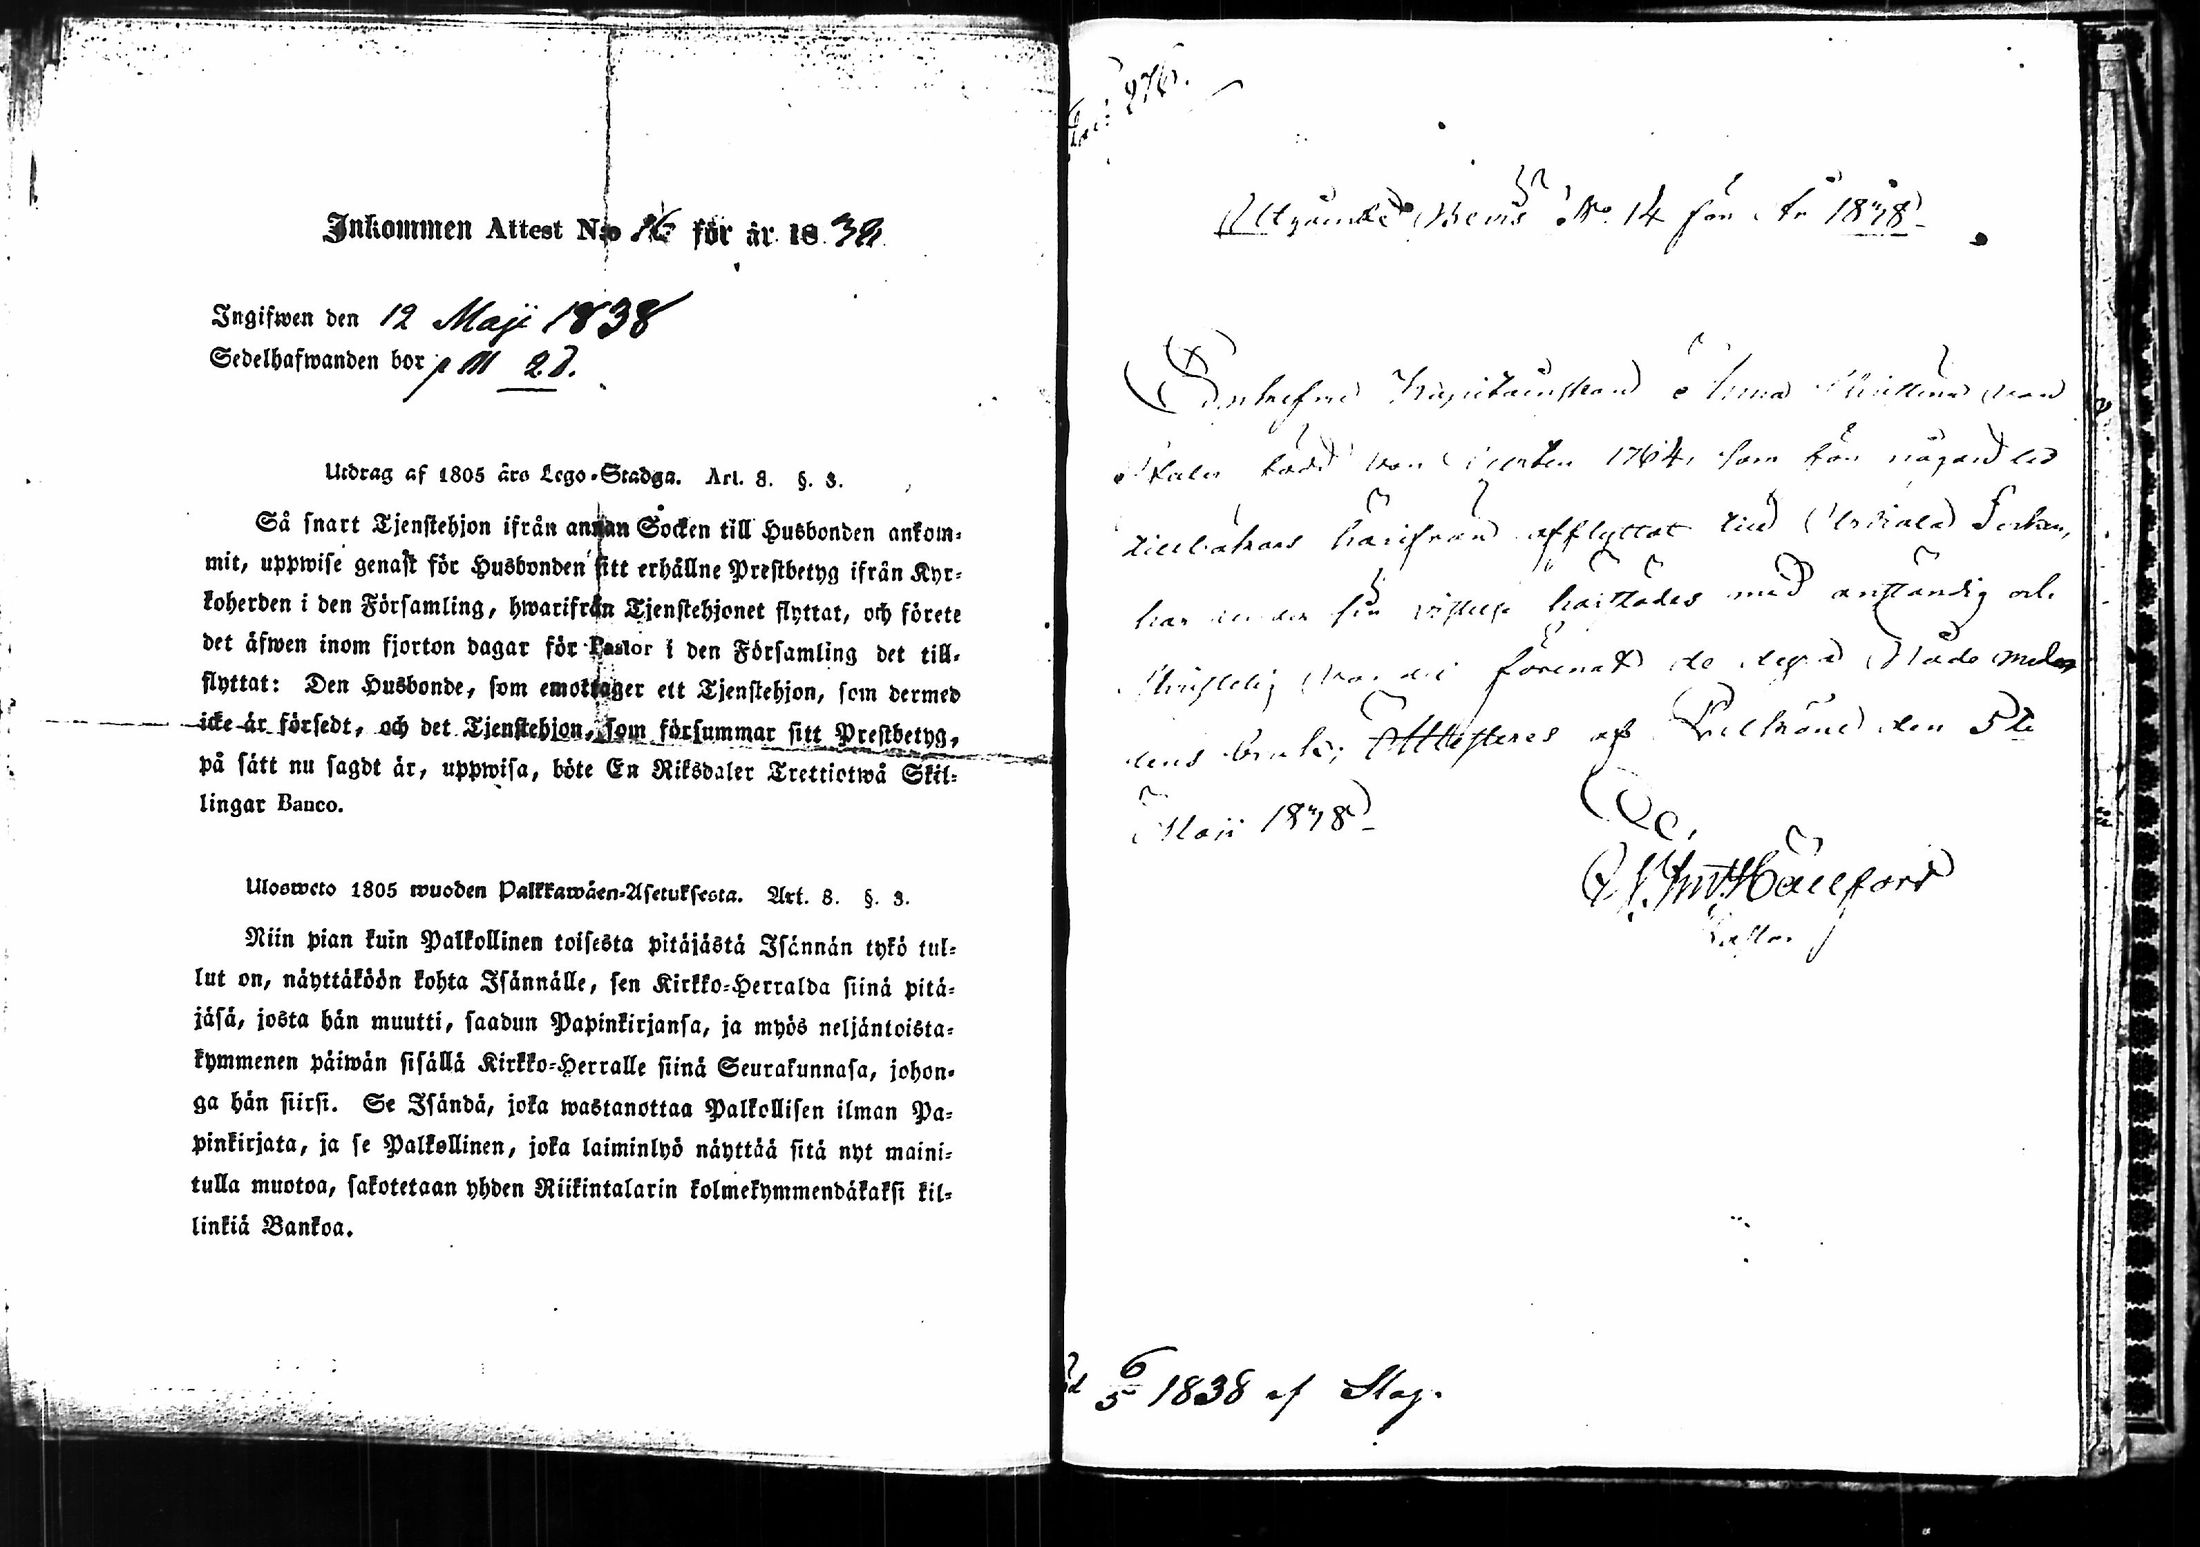 Inkommen Attest N:o 16 för år 1838
Ingifwen den 12 Maji 1838
Sedelhafwanden bor p M 28.
Utdrag af 1805 års Lego-Stadga. Art. 8. §. 3.
Så snart Tjenstehjon ifrån annan Socken till Husbonden ankom-
mit, uppwise genast för Husbonden sitt erhållne Prestbetyg ifrån Kyr-
koherden i den Församling, hwarifrån Tjenstehjonet flyttat, och förete
det äfwen inom fjorton dagar för Pastor i den Församling det till-
flyttat: Den Husbonde, som emottager ett Tjenstehjon, som dermed
icke är försedt, och det Tjenstehjon, som försummar sitt Prestbetyg,
på sätt nu sagdt är, uppwisa, böte En Riksdaler Trettiotwå Skil-
lingar Banco.
Ulosweto 1805 wuoden Palkkawäen-Asetuksesta. Art. 8. §. 3.
Niin pian kuin Palkollinen toisesta pitäjästä Isännän tykö tul-
lut on, näyttäköön kohta Isännälle, sen Kirkko-Herralda siinä pitä-
jäsä, josta hän muutti, saadun Papinkirjansa, ja myös neljäntoista-
kymmenen päiwän sisällä Kirkko-Herralle siinä Seurakunnasa, johon-
ga hän siirsi. Se Isändä, joka wastanottaa Palkollisen ilman Pa-
pinkirjata, ja se Palkollinen, joka laiminlyö näyttää sitä nyt maini-
tulla muotoa, sakotetaan yhden Riikintalarin kolmekymmendäkaksi kil-
linkiä Bankoa.
276.
Utgående Bevis No. 14 för År 1838
Enkefru Kapitainskan Anna Christina von
född den 1764, som för några år
tillbakars härifrån afflyttat till Urdiala Socken,
har under sin vistelse härstädes med anständig och
Christelig vandel förenat de dyra Nåde medlens
bruk; Attesteres af den 5te
Maji 1838
Hällfors
Pastor
6/5 1838 af Slag.